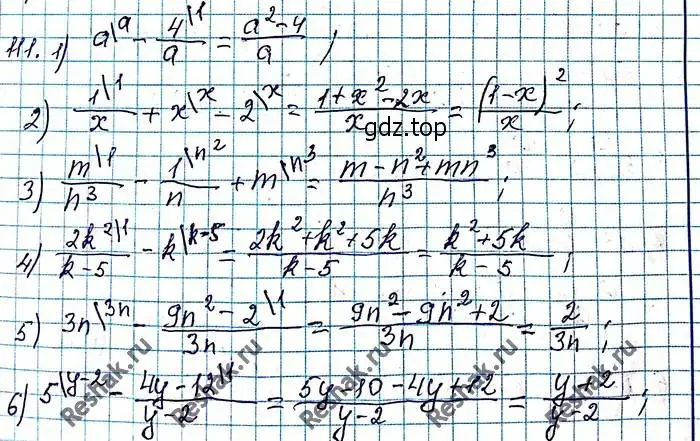 111. 1) a\a - 4\1/a = a²-4/a ;
2) 1\1/x + x\x - 2\x = 1+x²-2x/x = (1-x)²/x ;
gdz.top
3) m\1/n³ - 1\n²/n + m\n³ = m-n²+mn³/n³ ;
4) 2k²\1/k-5 - k\k-5 = 2k²+k²+5k/k-5 = k²+5k/k-5 ;
5) 3n\3n - 9n²-2\1/3n = 9n²-9n²+2/3n = 2/3n ;
6) 5\y-2 - 4y-12\1/y-2 = 5y-10-4y+12/y-2 = y+2/y-2 ;
Reshak.ru
Reshak.ru
Reshak.ru
Reshak.ru